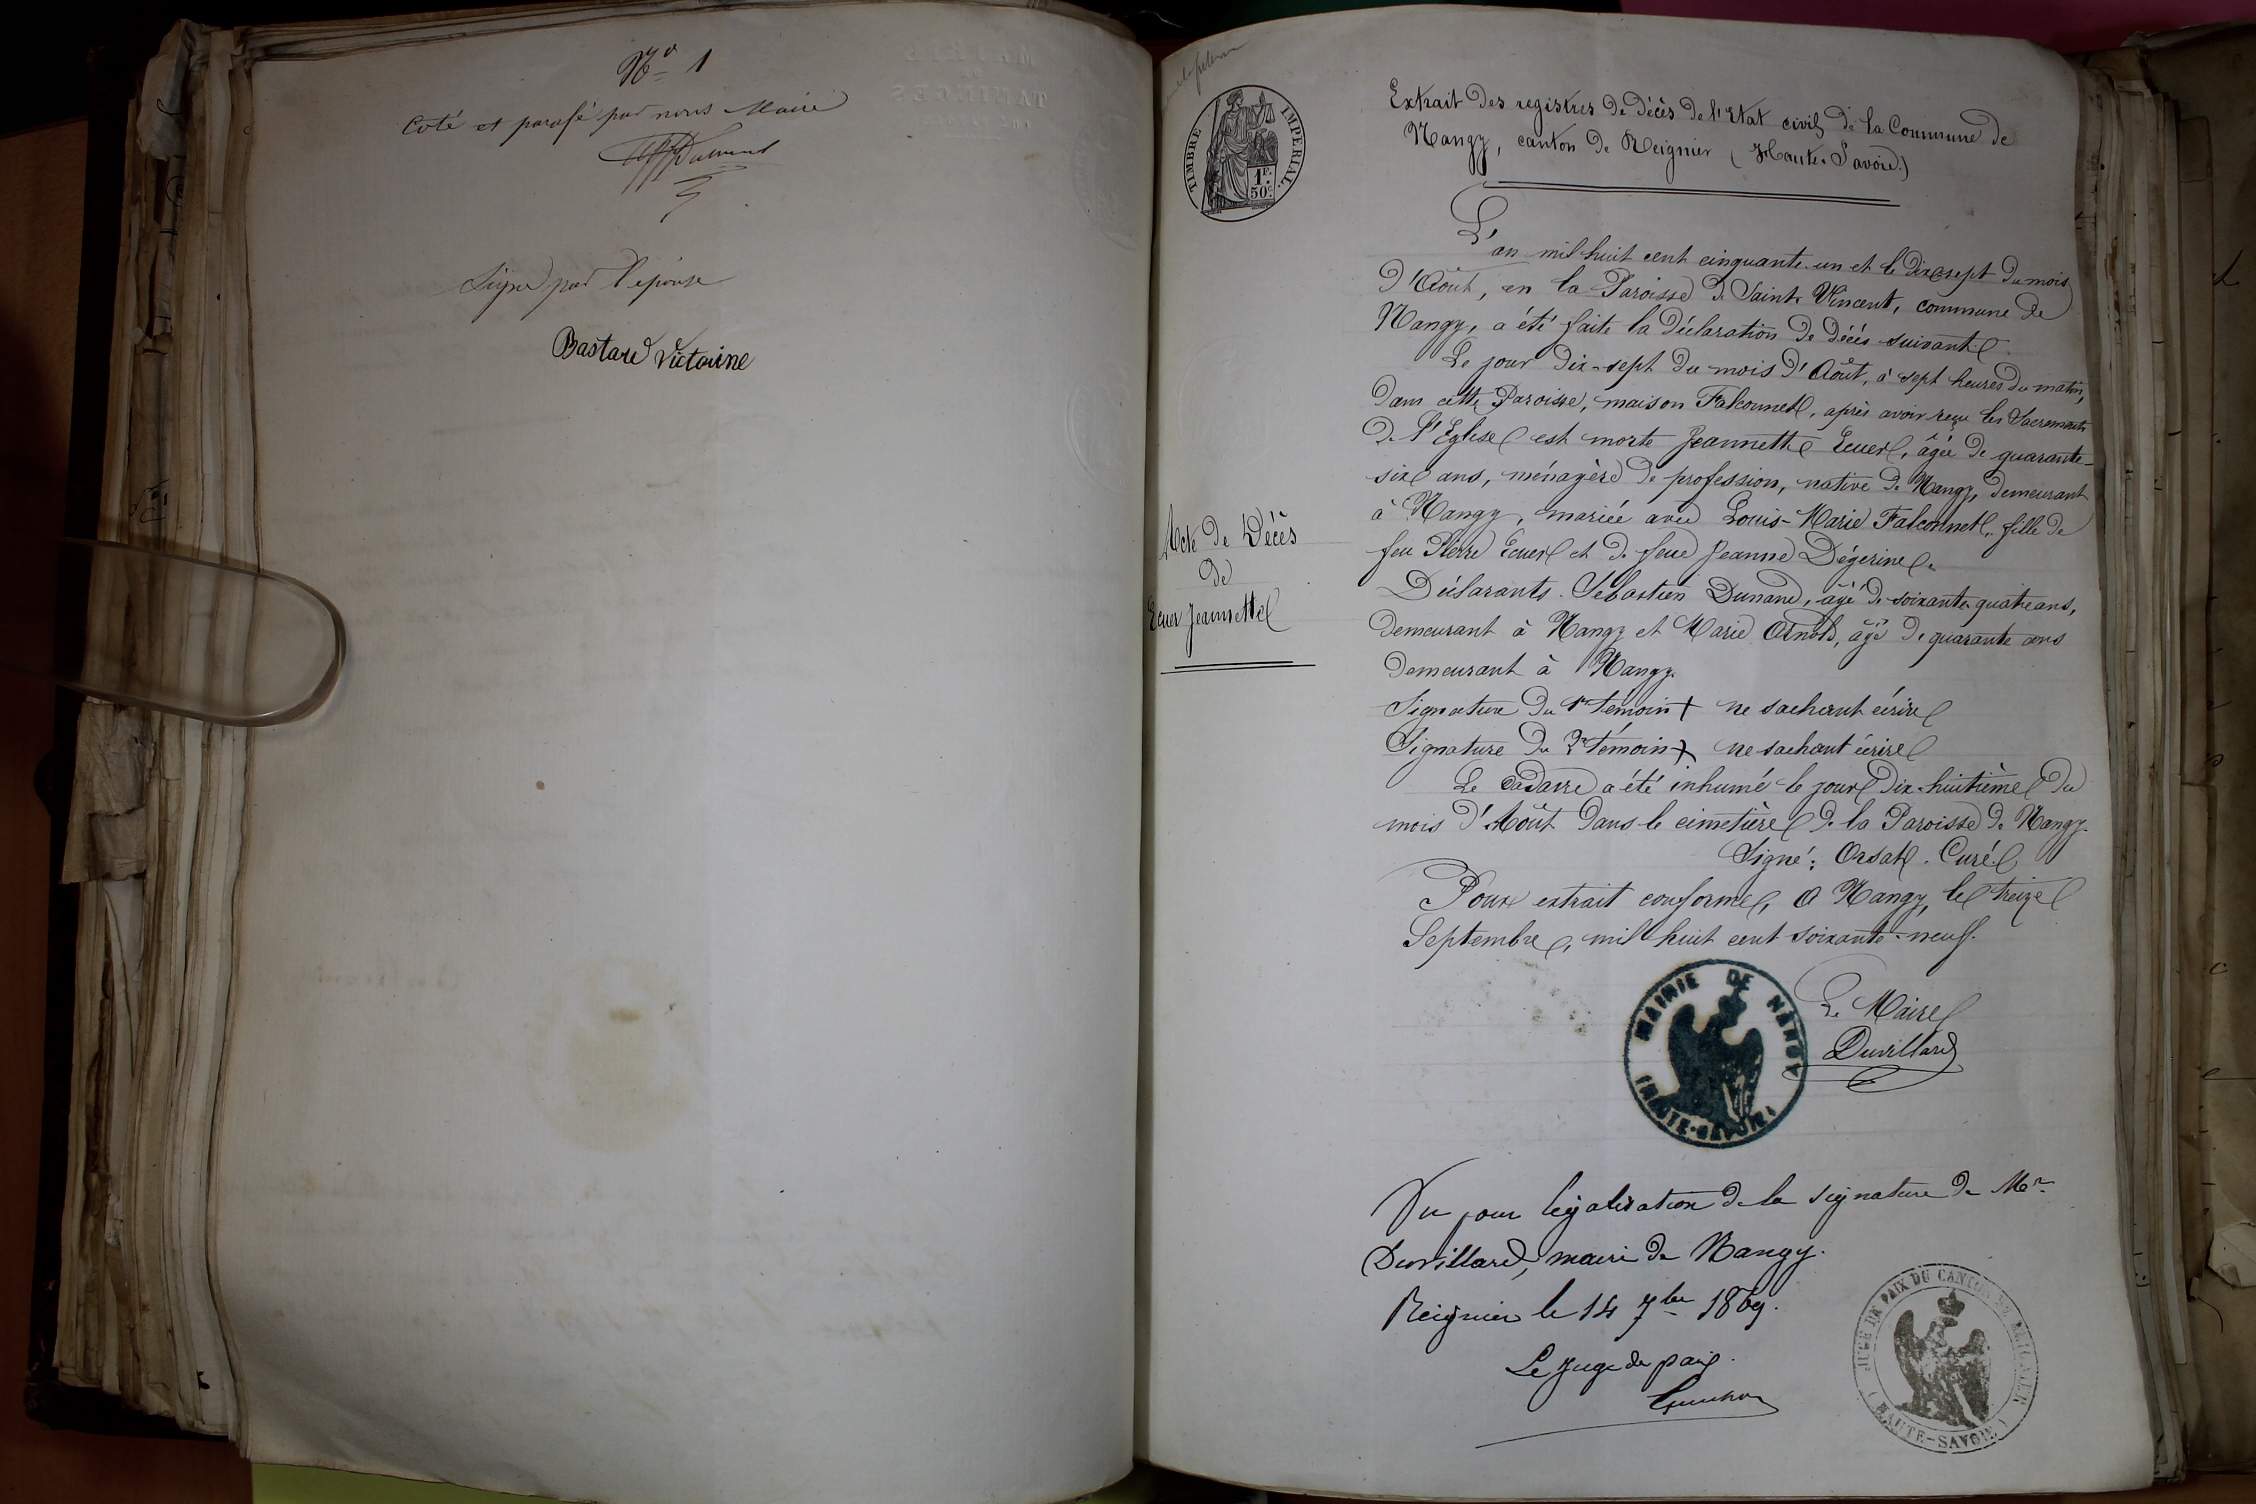 No 1
Coté et parafé par nous Maire
Signé par l'épouse
Bastard Victorine
MAIRIE
TANINGES
TIMBRE IMPERIAL
1F.
50c.
Extrait des registres de décès de l'Etat civil de la Commune de
Nangy, canton de Reignier (Haute-Savoie.)
L'an mil huit cent cinquante-un et le dix-sept du mois
d'Août, en la Paroisse de Saint-Vincent, commune de
Nangy, a été faite la déclaration de décès suivante.
Le jour dix-sept du mois d'Août, à sept heures du matin,
dans cette Paroisse, maison Falconnet, après avoir reçu les Sacrements
de l'Eglise est morte Jeannette Ecuer, âgée de quarante-
six ans, ménagère de profession, native de Nangy, demeurant
à Nangy, mariée avec Louis-Marie Falconnet, fille de
feu Pierre Ecuer et de feue Jeanne Dégerine.
Déclarants. Sébastien Dunand, âgé de soixante-quatre ans,
demeurant à Nangy et Marie Arnold, âgé de quarante ans
demeurant à Nangy.
Signature du 1er témoin + ne sachant écrire
Signature du 2e témoin + ne sachant écrire
Le cadavre a été inhumé le jour dix-huitième du
mois d'Août dans le cimetière de la Paroisse de Nangy.
Signé: Orsat. Curé.
Acte de Décès
de
Ecuer Jeannette
Pour extrait conforme, A Nangy, le treize
Septembre, mil huit cent soixante-neuf.
Le Maire
Duvillard
MAIRIE DE NANGY
(HAUTE-SAVOIE)
Vu pour légalisation de la signature de Mr
Duvillard, maire de Nangy.
Reignier le 14 7bre 1869.
Le Juge de paix.
JUGE DE PAIX DU CANTON DE REIGNIER
(HAUTE-SAVOIE)